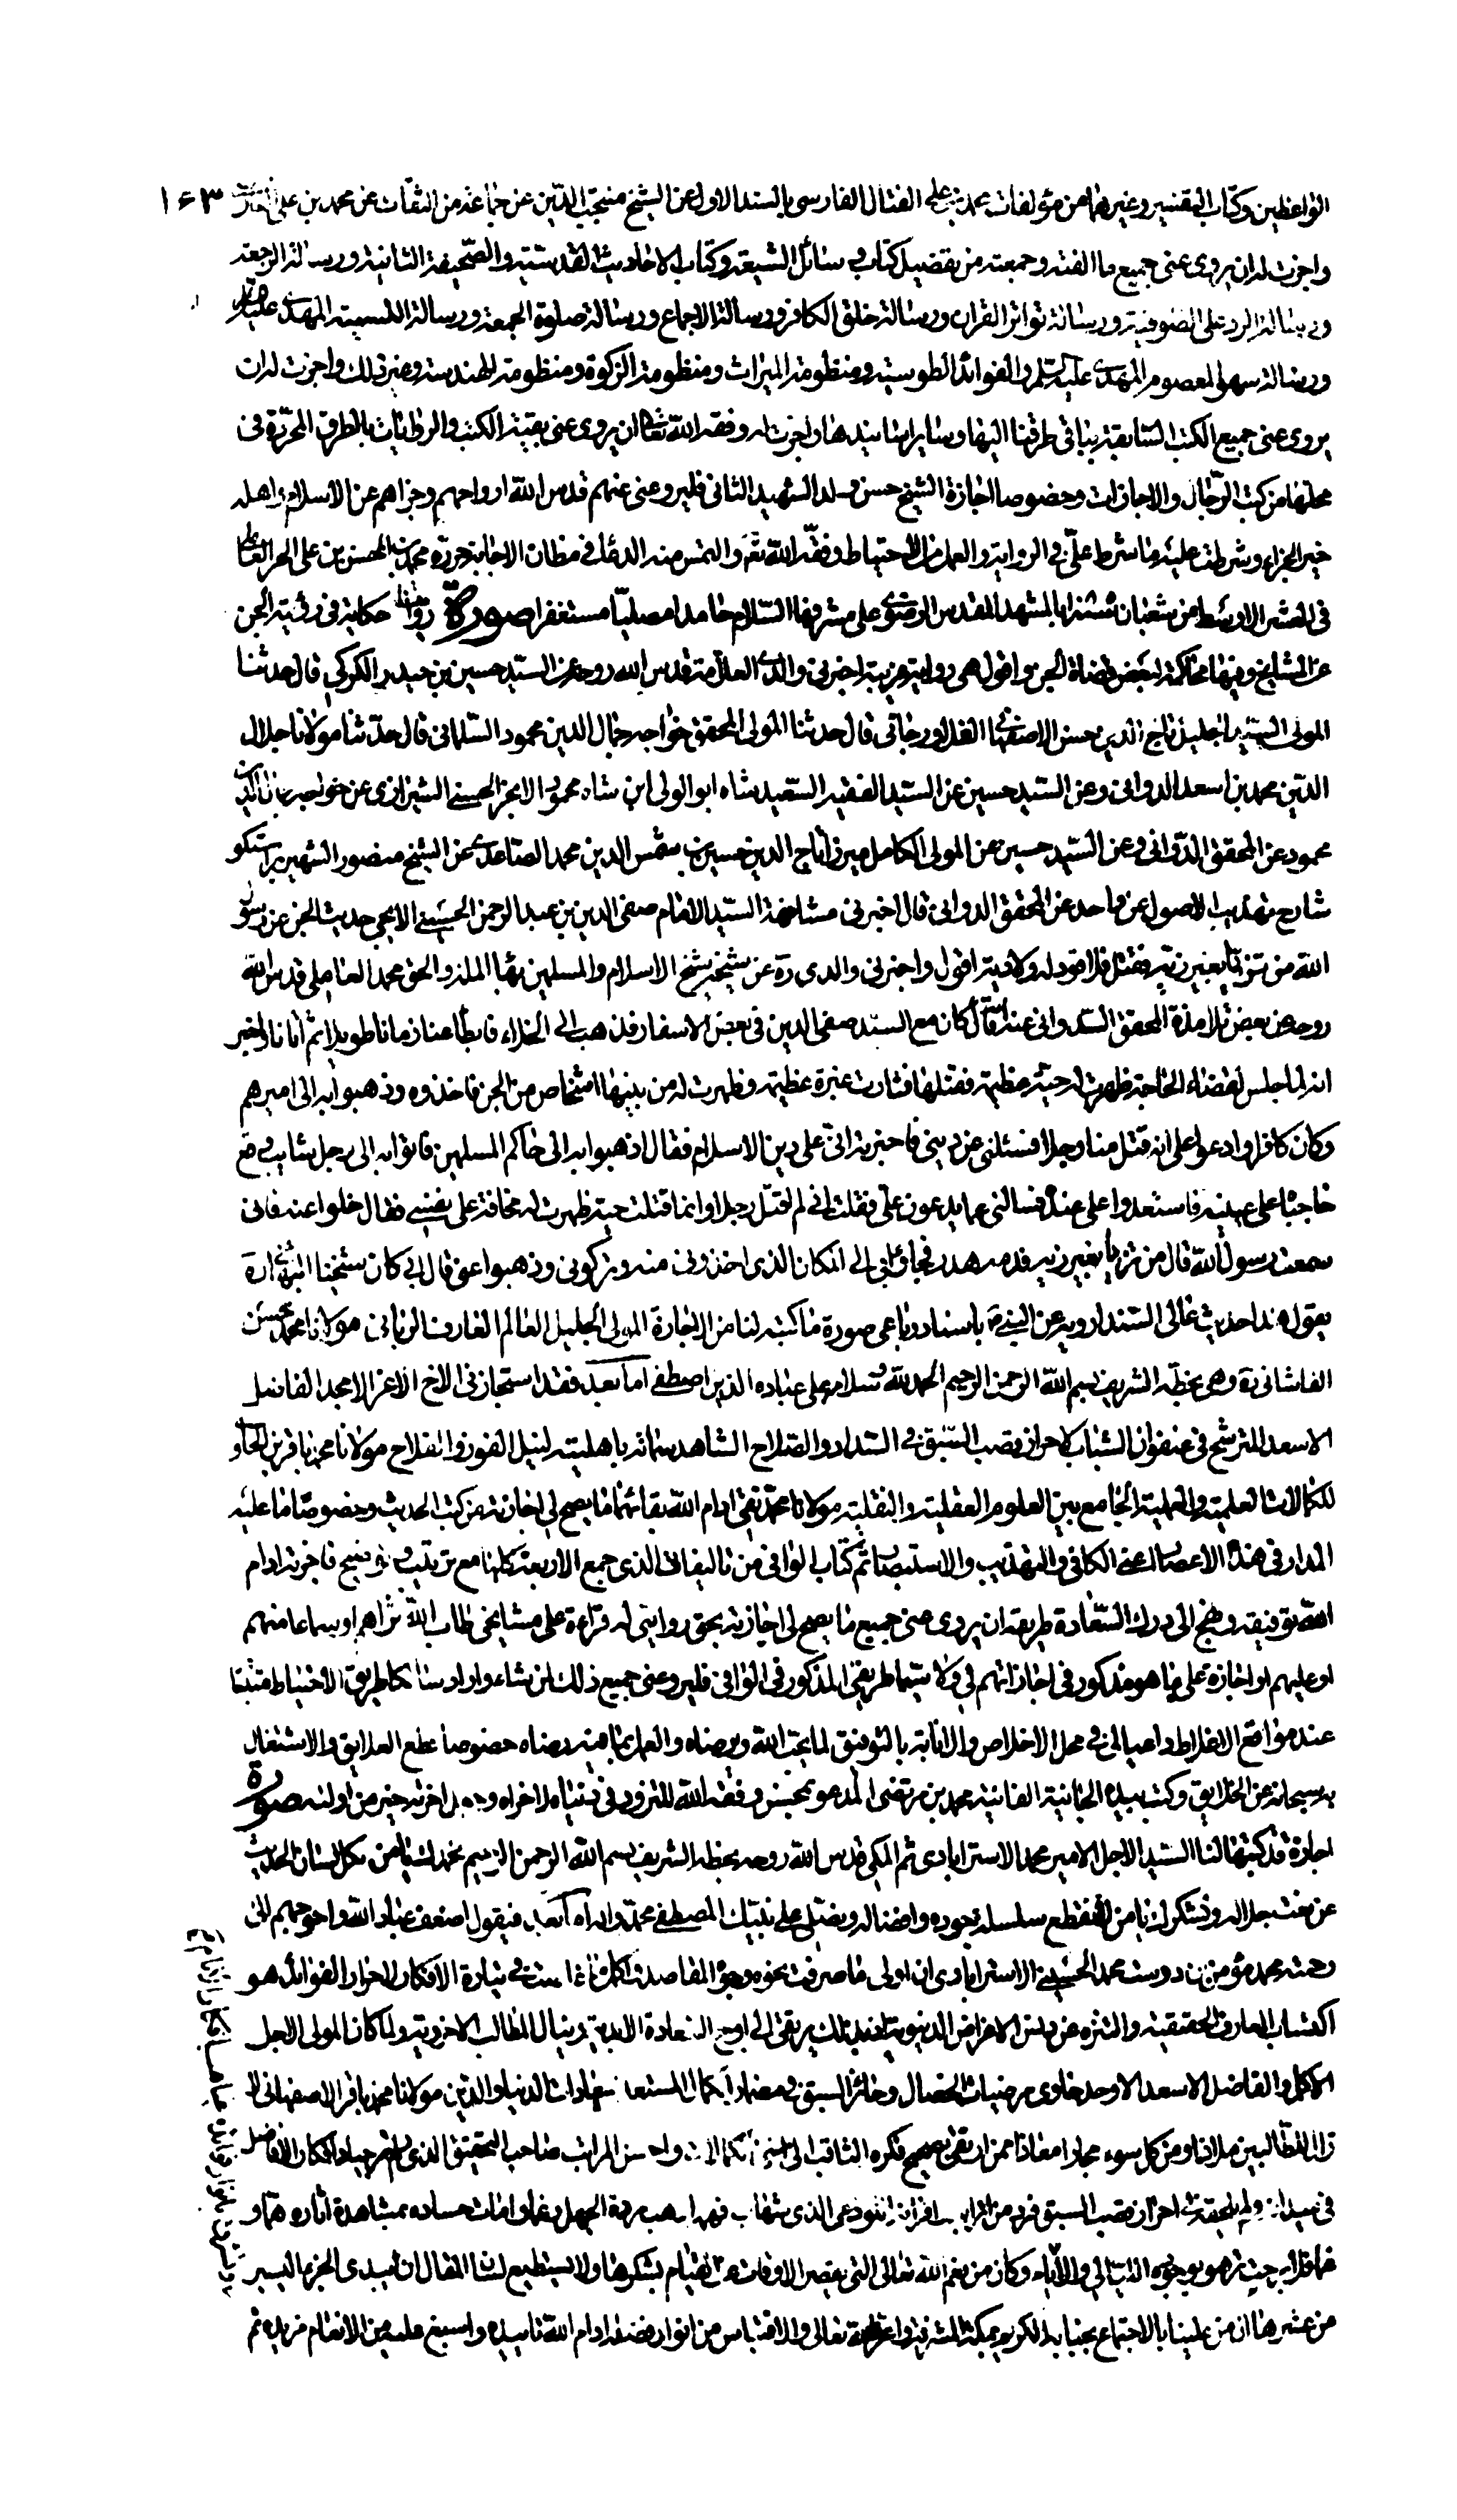 ١٤٣
الواعظين وكتاب التفسير وغيرهما من مؤلفات محمد بن علي الفتال الفارسي بالسند الاول عن الشيخ منتجب الدين عن جماعة من الثقات عن محمد بن علي
واجزت له ان يروي عني جميع ما الفته وجمعته من تفضيل كتاب وسائل الشيعة وكتاب الاحاديث القدسية والصحيفة الثانية ورسالة الرجعة
ورسالة الرد على الصوفية ورسالة تواتر القران ورسالة خلق الكافر ورسالة الاجماع ورسالة صلوة الجمعة ورسالة التسمية المهدي عليه
ورسالة سهو المعصوم المهدي عليه السلم والفوائد الطوسية ومنظومة الميراث ومنظومة الزكوة ومنظومة الهندسة وغير ذلك واجزت له ان
يروي عني جميع الكتب السابقة بباقي طرقنا اليها وسائر اسانيدها واجزت له وفقه الله تعالى ان يروي عني بقية الكتب والروايات بالطرق المحررة في
محلها من كتب الرجال والاجازات وخصوصا اجازة الشيخ حسن ولد الشهيد الثاني فليرو عني عنهم قدس الله ارواحهم وجزاهم عن الاسلام واهله
خير الجزاء وشرطت عليه ما شرط علي في الرواية والعمل من الاحتياط وفقه الله تع والتمس منه الدعاء في مظان الاجابة حرره محمد بن الحسن بن علي الحر العاملي
في العشر الاوسط من شعبان بالمشهد المقدس الرضوي على مشرفها السلام حامدا مصليا مستغفرا صورة حكاية في رؤية الجن
عن المشايخ وفيها محاكمة لبعض قضاة الجن واقول هي رواية غريبة اخبرني والدي العلامة قدس الله روحه عن السيد حسين بن حيدر الكركي قال حدثنا
المولى السيد الجليل تاج الدين حسن الاصفهاني الفلاورجاني قال حدثنا المولى المحقق خواجه جمال الدين محمود السلماني قال حدثنا مولانا جلال
الدين محمد بن اسعد الدواني وعن السيد حسين عن السيد الفقيه السعيد شاه ابو الولي ابن شاه محمود الانجو الحسني الشيرازي عن خواجه جمال الدين
محمود عن المحقق الدواني وعن السيد حسين عن المولى الكامل ميرزا تاج الدين حسين بن شمس الدين محمد الصاعدي عن الشيخ منصور الشهير براستگو
شارح تهذيب الاصول عن واحد عن المحقق الدواني قال اخبرني مشافهة السيد الامام صفي الدين بن عبد الرحمن الحسيني الايجي حديث الجن عن رسول
الله من تزيا بغير زيه فقتل فلا قود له ولا دية اقول واخبرني والدي ره عن شيخه شيخ الاسلام والمسلمين بهاء الملة والحق محمد العاملي قدس الله
روحه عن بعض تلامذة المحقق الدواني عنه انه قال كان مع السيد صفي الدين في بعض الاسفار فذهب الى الخلاء فابطأ عنا زمانا طويلا ثم اتانا واخبر
انه لما جلس لقضاء الحاجة ظهرت له حية عظيمة فقتلها فثارت غبرة عظيمة وظهرت له من بينها اشخاص من الجن فاخذوه وذهبوا به الى اميرهم
وكان كافرا وادعوا علي انه قتل منا رجلا فسئلني عن ديني فاخبرته اني على دين الاسلام فقال اذهبوا به الى حاكم المسلمين فاتوا به الى رجل شايب وقع
حاجباه على عينيه فاستعدوا علي عنده فسالني عما يدعون علي فقلت اني لم اقتل رجلا وانما قتلت حية ظهرت لي مخافة على نفسي فقال خلوا عنه فاني
سمعت رسول الله قال من تزيا بغير زيه فدمه هدر فجاؤا بي الى المكان الذي اخذوني منه وتركوني وذهبوا عني قال ابي كان شيخنا البهائي ره
يقول هذا حديث عالي السند ارويه عن النبي ص باسناد رباعي صورة ما كتبه لنا من الاجازة المولى الجليل العالم العارف الرباني مولانا محمد محسن
القاشاني ره وهي بخطه الشريف بسم الله الرحمن الرحيم الحمد لله وسلام على عباده الذين اصطفى اما بعد فقد استجازني الاخ الاعز الامجد الفاضل
الاسعد المترشح في عنفوان الشباب لاحراز قصب السبق في السداد والصلاح الشاهد سماته باهليته لنيل الفوز والفلاح مولانا محمد باقر بن الحاوي
للكمالات العلمية والعملية الجامع بين العلوم العقلية والنقلية مولانا محمد تقي ادام الله بقائهما ما يصح لي اجازته من كتب الحديث وخصوصا ما عليه
المدار في هذه الاعصار اعني الكافي والفقيه والتهذيب والاستبصار ثم كتاب الوافي من تاليفاتي الذي جمع الاربعة كلها مع ترتيب وتوضيح فاجزته ادام
الله توفيقه ونهج الى درك السعادة طريقه ان يروي عني جميع ما يصح لي اجازته بحق روايتي له قراءة على مشايخي طاب الله ثراهم او سماعا منهم
او عليهم او اجازة على ما هو مذكور في اجازاتهم لي ولا سيما طريقي المذكور في الوافي فليرو عني جميع ذلك لمن شاء واراد سالكا طريق الاحتياط متثبتا
عند مواقع الاغلاط داعيا لي في محل الاخلاص والانابة بالتوفيق لما يحب الله ويرضاه والعمل بما فيه رضاه خصوصا قطع العلايق والاشتغال
به سبحانه عن الخلايق وكتب بيده الجانية الفانية محمد بن مرتضى المدعو بمحسن وفقه الله للتزود في دنياه لاخراه وجعل اخرته خير من اولاه صورة
اجازة قد كتبها لنا السيد الاجل الامير محمد الاسترابادي ثم المكي قدس الله روحه بخطه الشريف بسم الله الرحمن الرحيم نحمدك يا من يكل لسان الحديث
عن نعت جلاله ونشكرك يا من لا تنقطع سلسلة جوده وافضاله ونصلي على نبيك المصطفى محمد واله اما بعد فيقول اضعف عباد الله واحوجهم الى
رحمته محمد مؤمن بن دوست محمد الحسيني الاسترابادي ان اولى ما صرفت نحوه وجوه المقاصد في سيارة الافكار لاحراز الفوائد هو
اكتساب المعارف الحقيقية والتنزه عن دنس الاعراض الدنيوية فبذلك يرتقى الى اوج السعادة الابدية وينال المطالب الاخروية ولما كان المولى الاجل
الاكمل والفاضل الاسعد الاوحد حاوي مرضيات الخصال وحائز السبق في مضمار الكمال سعادات الدنيا والدين مولانا محمد باقر الاصفهاني لا
زال للطالبين ملاذا ومن كل سوء مجارا معاذا ممن ارتقى بصحيح فكره الثاقب الى اسنى الكمالات واحسن المراتب صاحب التحقيق الذي لم جياد افكار الافاضل
في ميدانه ولم يلحقه في احراز قصب السبق فرد من اقرانه اللوذعي الذي شهاب فهمه مردة الجهل وغماوا مات حساده بمشاهدة اثاره هما و
غما فلا زهو بوجوده الليالي والايام وكان من نعم الله تعالى التي يقصر الاوقات عن القيام بشكرها ولا يستطيع لسان المقال ان يبدي الجزء اليسير
من عشرها ان من علينا بالاجتماع بجنابه الكريم بمكة المشرفة تعالى والاقتباس من انوار فضله ادام الله تاييده واسبغ عليه من الانعام مزيده ثم